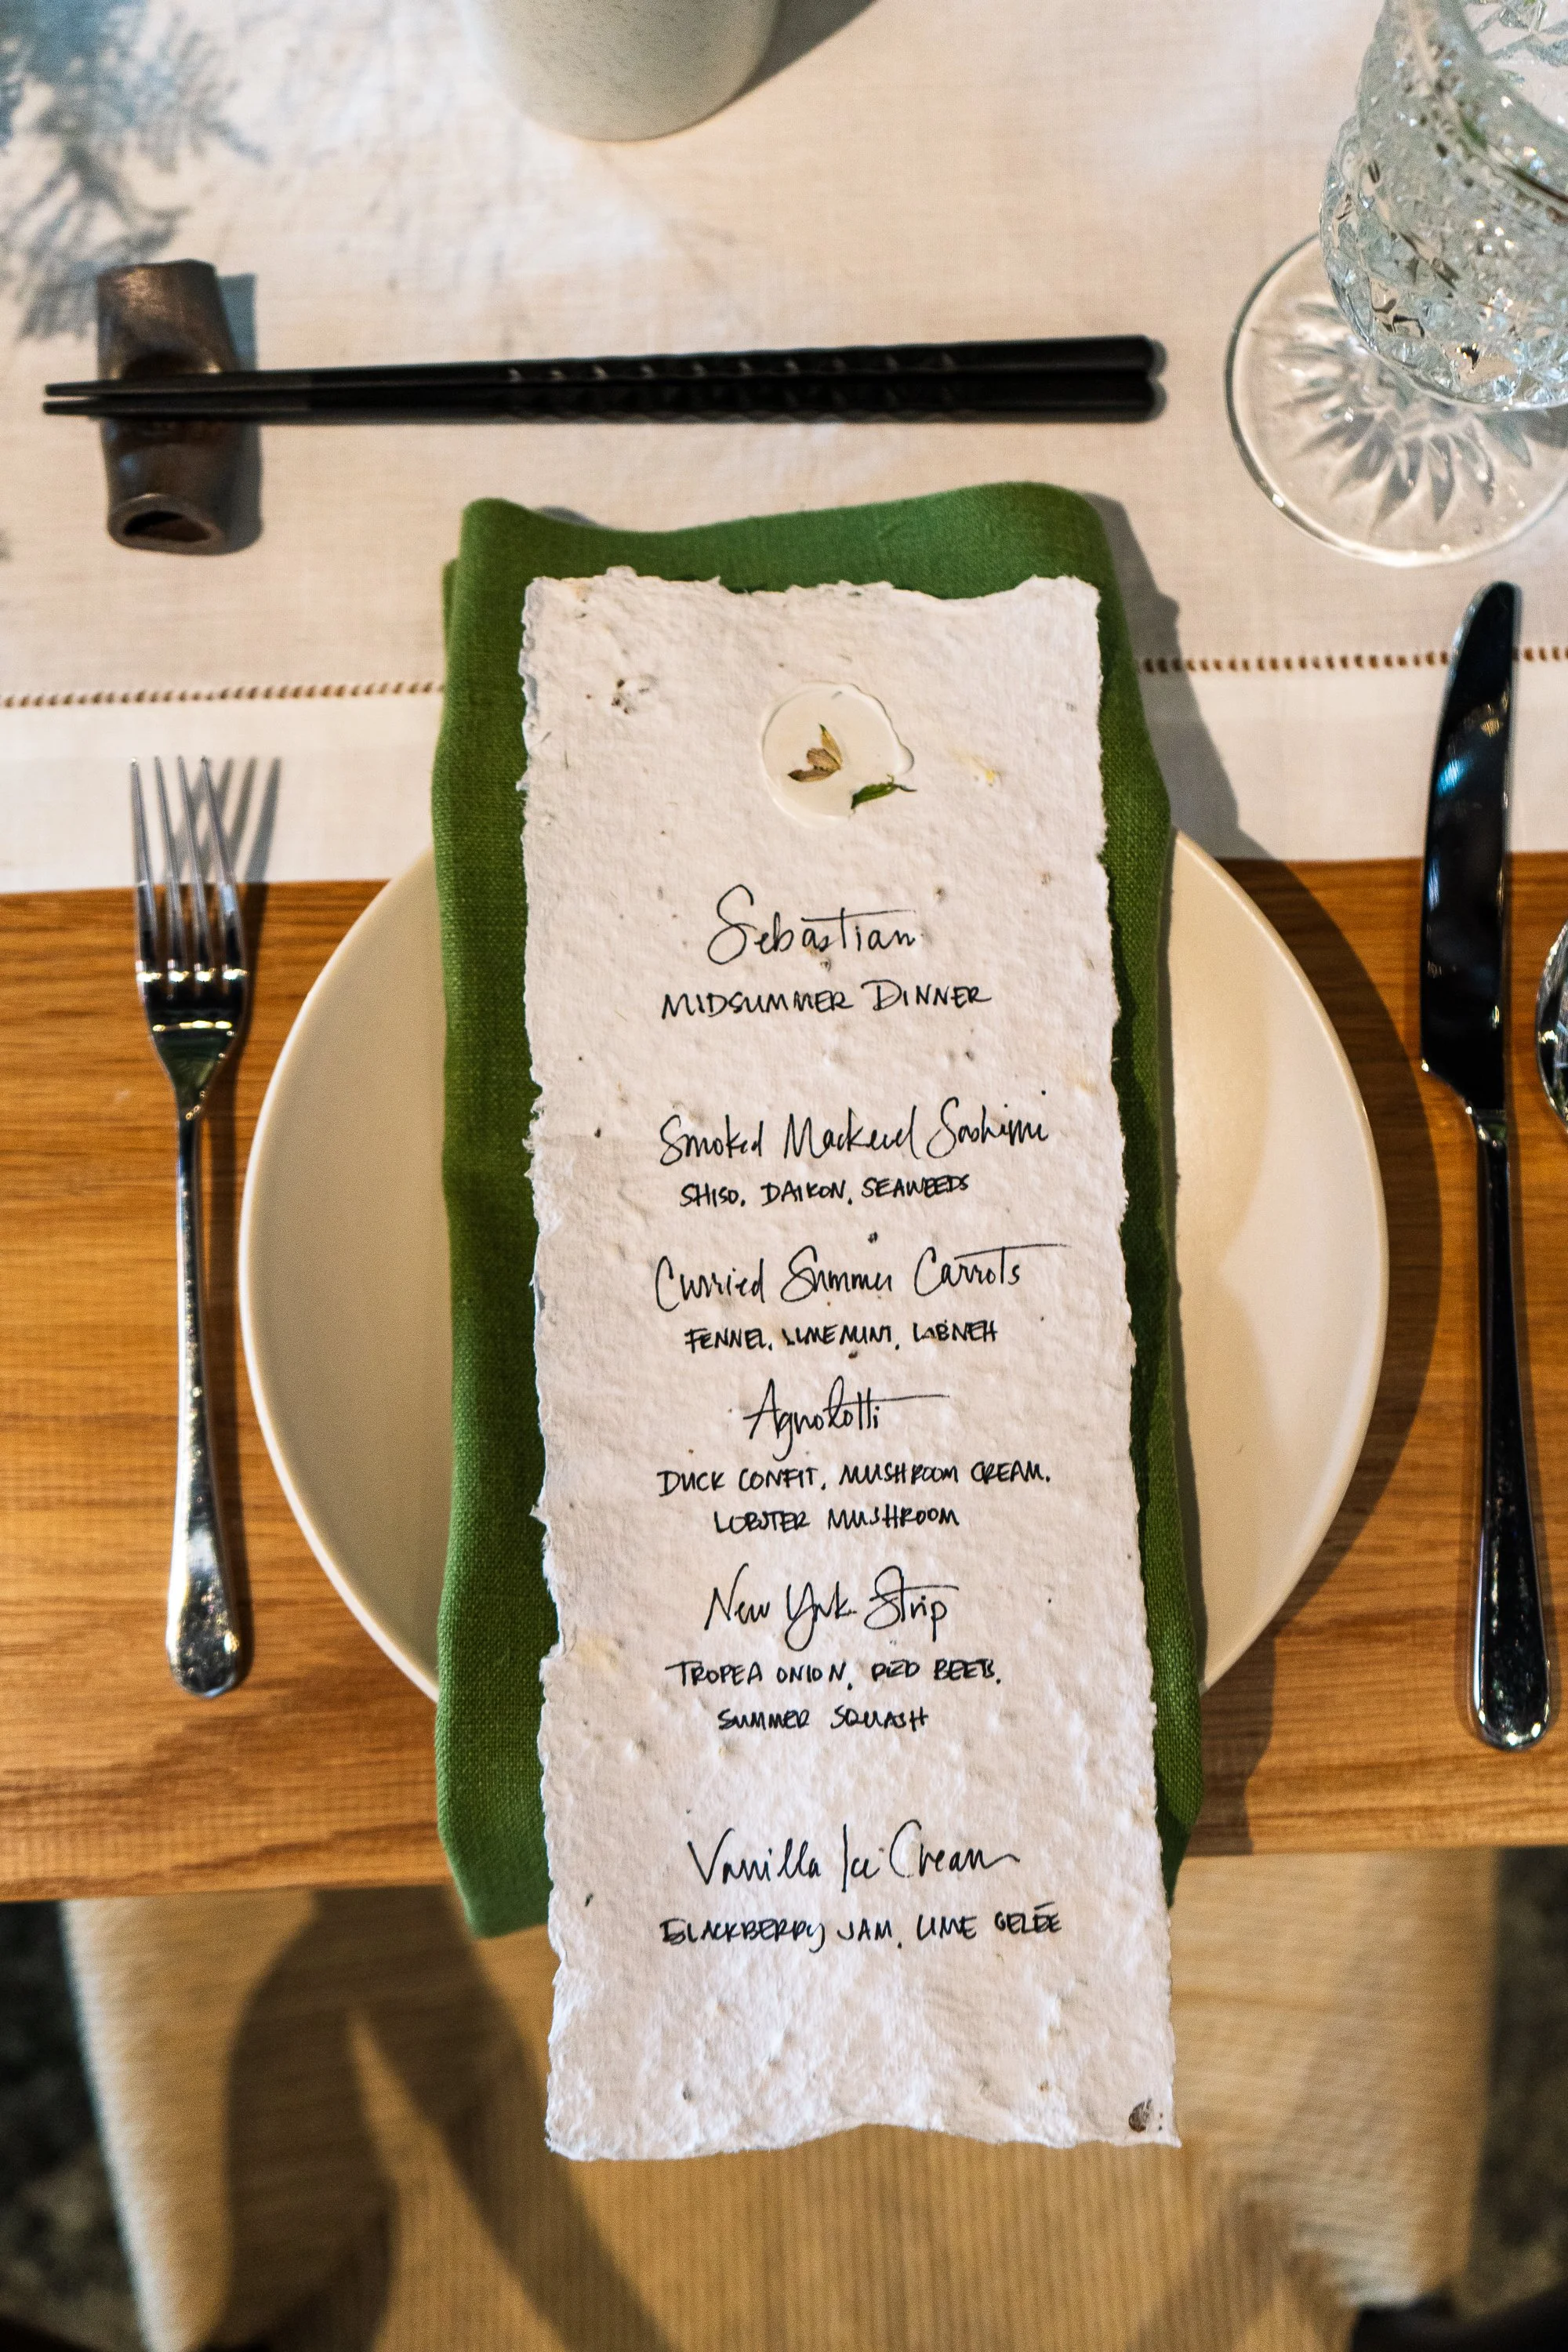 Sebastian
MIDSUMMER DINNER
Smoked Mackerel Sashimi
SHISO, DAIKON, SEAWEEDS
Curried Summer Carrots
FENNEL, LIME MINT, LABNEH
Agnolotti
DUCK CONFIT, MUSHROOM CREAM,
LOBSTER MUSHROOM
New York Strip
TROPEA ONION, RED BEETS,
SUMMER SQUASH
Vanilla Ice Cream
BLACKBERRY JAM, LIME GELÉE